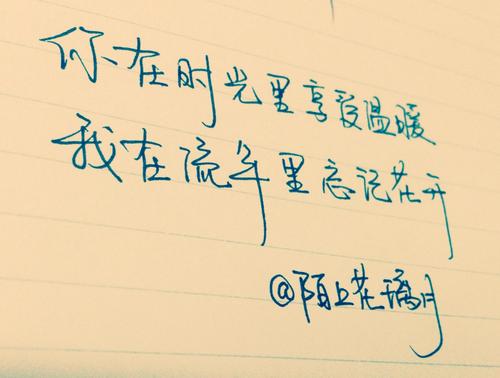 你在时光里享受温暖
我在流年里忘记花开
@陌上花璃月